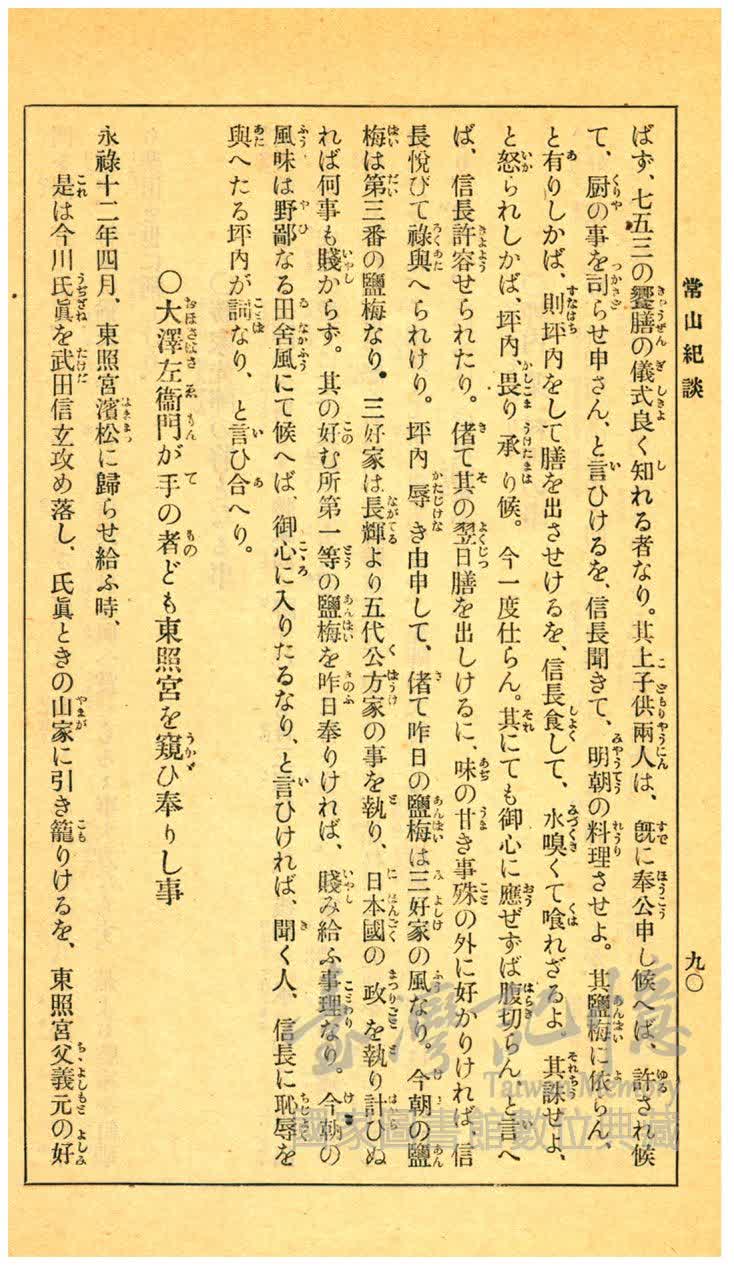 常山紀談
九〇
ばず、七五三の饗膳の儀式良く知れる者なり。其上子供兩人は、既に奉公申し候へば、許され候
て、厨の事を司らせ申さん、と言ひけるを、信長聞きて、明朝の料理させよ。其鹽梅に依らん、
と有りしかば、則坪内をして膳を出させけるを、信長食して、水嗅くて喰れざるよ。其誅せよ、
と怒られしかば、坪内、畏り承り候。今一度仕らん。其にても御心に應ぜずば腹切らん、と言へ
ば、信長許容せられたり。偖て其の翌日膳を出しけるに、味の甘き事殊の外に好かりければ、信
長悅びて祿與へられけり。坪内辱き由申して、偖て昨日の鹽梅は三好家の風なり。今朝の鹽
梅は第三番の鹽梅なり。三好家は長輝より五代公方家の事を執り、日本國の政を執り計ひぬ
れば何事も賤からず。其の好む所第一等の鹽梅を昨日奉りければ、賤み給ふ事理なり。今朝の
風味は野鄙なる田舍風にて候へば、御心に入りたるなり、と言ひければ、聞く人、信長に恥辱を
與へたる坪内が詞なり、と言ひ合へり。
〇大澤左衞門が手の者ども東照宮を窺ひ奉りし事
永祿十二年四月、東照宮濱松に歸らせ給ふ時、
是は今川氏眞を武田信玄攻め落し、氏眞ときの山家に引き籠りけるを、東照宮父義元の好
臺灣記憶
Taiwan Memory
國家圖書館數位典藏